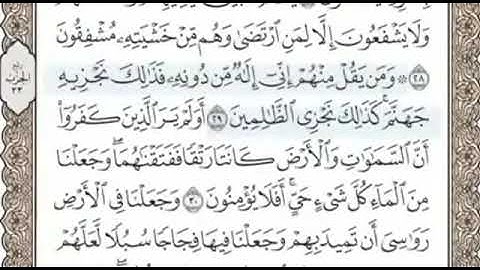 وَلَا يَشْفَعُونَ إِلَّا لِمَنِ ٱرْتَضَىٰ وَهُم مِّنْ خَشْيَتِهِۦ مُشْفِقُونَ
٢٨ ۞ وَمَن يَقُلْ مِنْهُمْ إِنِّىٓ إِلَٰهٌ مِّن دُونِهِۦ فَذَٰلِكَ نَجْزِيهِ
جَهَنَّمَ ۚ كَذَٰلِكَ نَجْزِى ٱلظَّٰلِمِينَ ٢٩ أَوَلَمْ يَرَ ٱلَّذِينَ كَفَرُوٓا۟
أَنَّ ٱلسَّمَٰوَٰتِ وَٱلْأَرْضَ كَانَتَا رَتْقًا فَفَتَقْنَٰهُمَا ۖ وَجَعَلْنَا
مِنَ ٱلْمَآءِ كُلَّ شَىْءٍ حَىٍّ ۖ أَفَلَا يُؤْمِنُونَ ٣٠ وَجَعَلْنَا فِى ٱلْأَرْضِ
رَوَٰسِىَ أَن تَمِيدَ بِهِمْ وَجَعَلْنَا فِيهَا فِجَاجًا سُبُلًا لَّعَلَّهُمْ
ربع
الحزب
٣٣